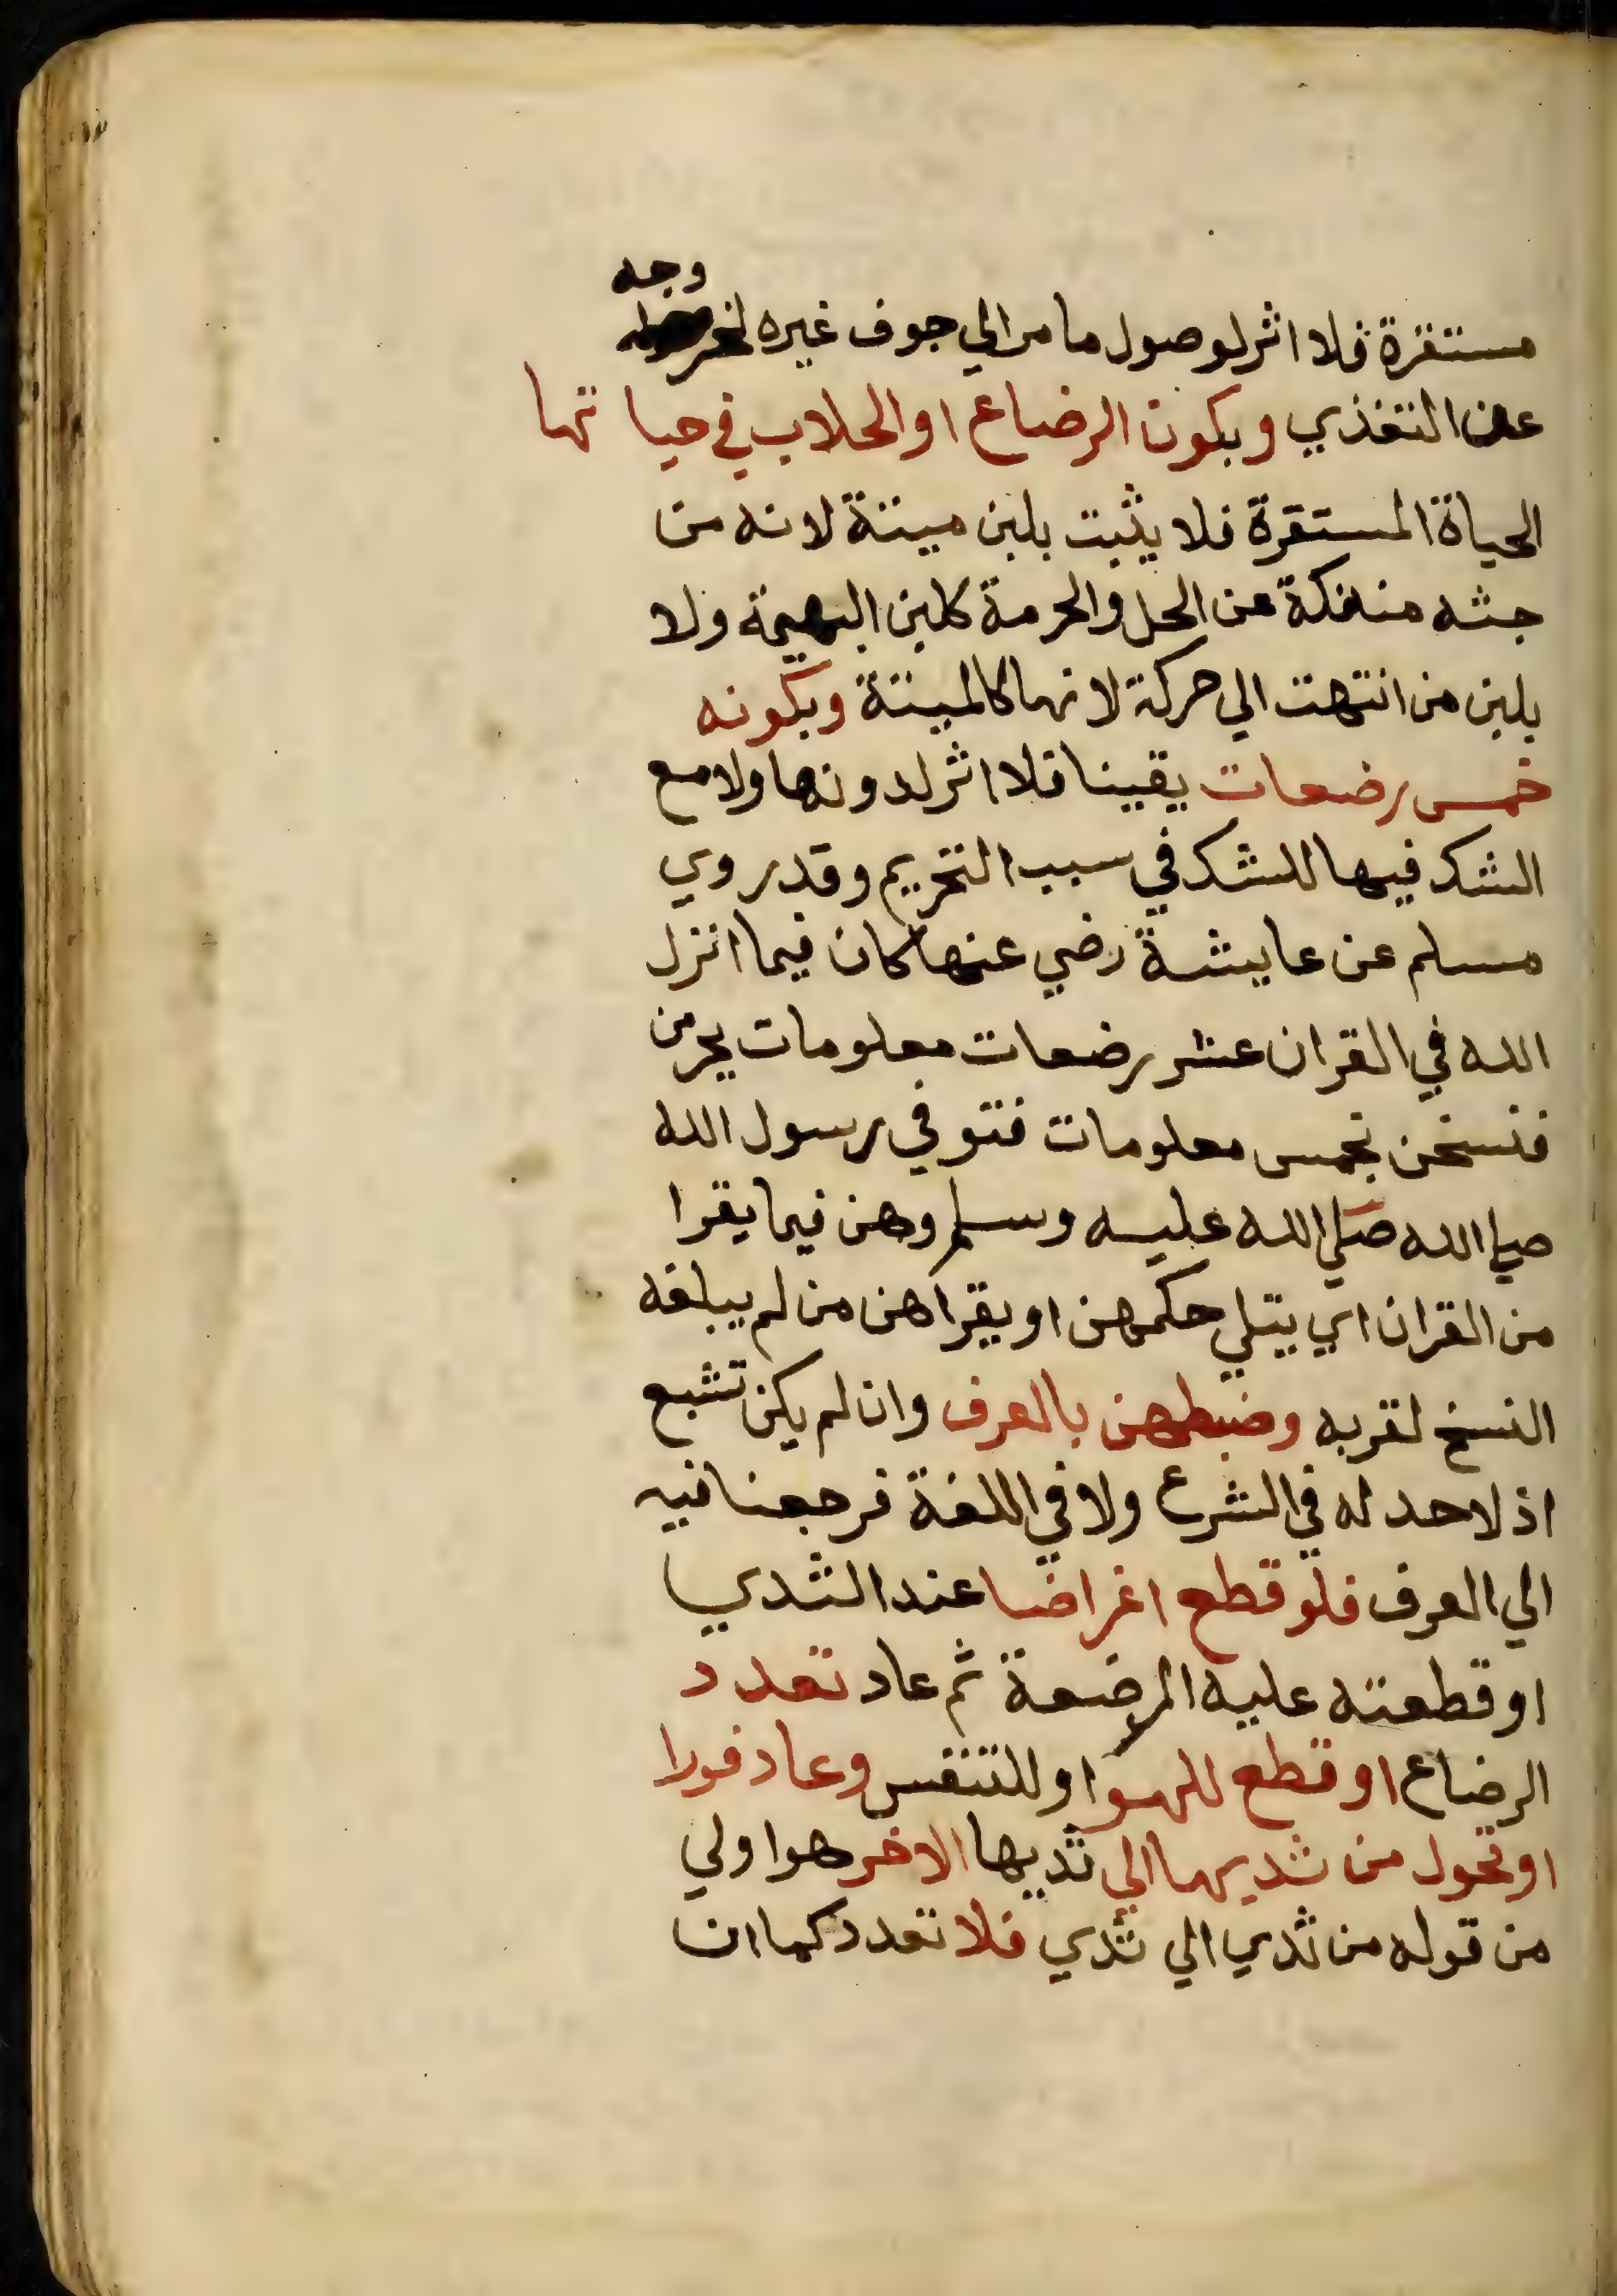 وجه
مستقرة فلا اثر لوصول ما مر الي جوف غيره لخر
عن التغذي وبكون الرضاع او الحلاب في حيا تها
الحياة المستقرة فلا يثبت بلبن ميتة لانه من
جثه منفكة عن الحل والحرمة كلبن البهيمة ولا
بلبن من انتهت الي حركة لانها كالميتة وبكونه
خمس رضعات يقينا فلا اثر لدونها ولا مع
الشك فيها للشك في سبب التحريم وقد روي
مسلم عن عايشة رضي عنها كان فيما انزل
الله في القران عشر رضعات معلومات يحرمن
فنسخن بخمس معلومات فتوفي رسول الله
صلي الله صلي الله عليه وسلم وهن فيما يقرا
من القران اي يتلي حكمهن او يقراهن من لم يبلغه
النسخ لقربه وضبطهن بالعرف وان لم يكن تشبع
اذ لا حد له في الشرع ولا في اللغة فرجعنا فيه
الي العرف فلو قطع اغراضا عند الثدي
او قطعته عليه المرضعة ثم عاد تعدد
الرضاع او قطع للهوا وللتنفس وعاد فورا
او تحول من ثديها الي ثديها الاخر هو اولي
من قوله من ثدي الي ثدي فلا تعدد كما ان